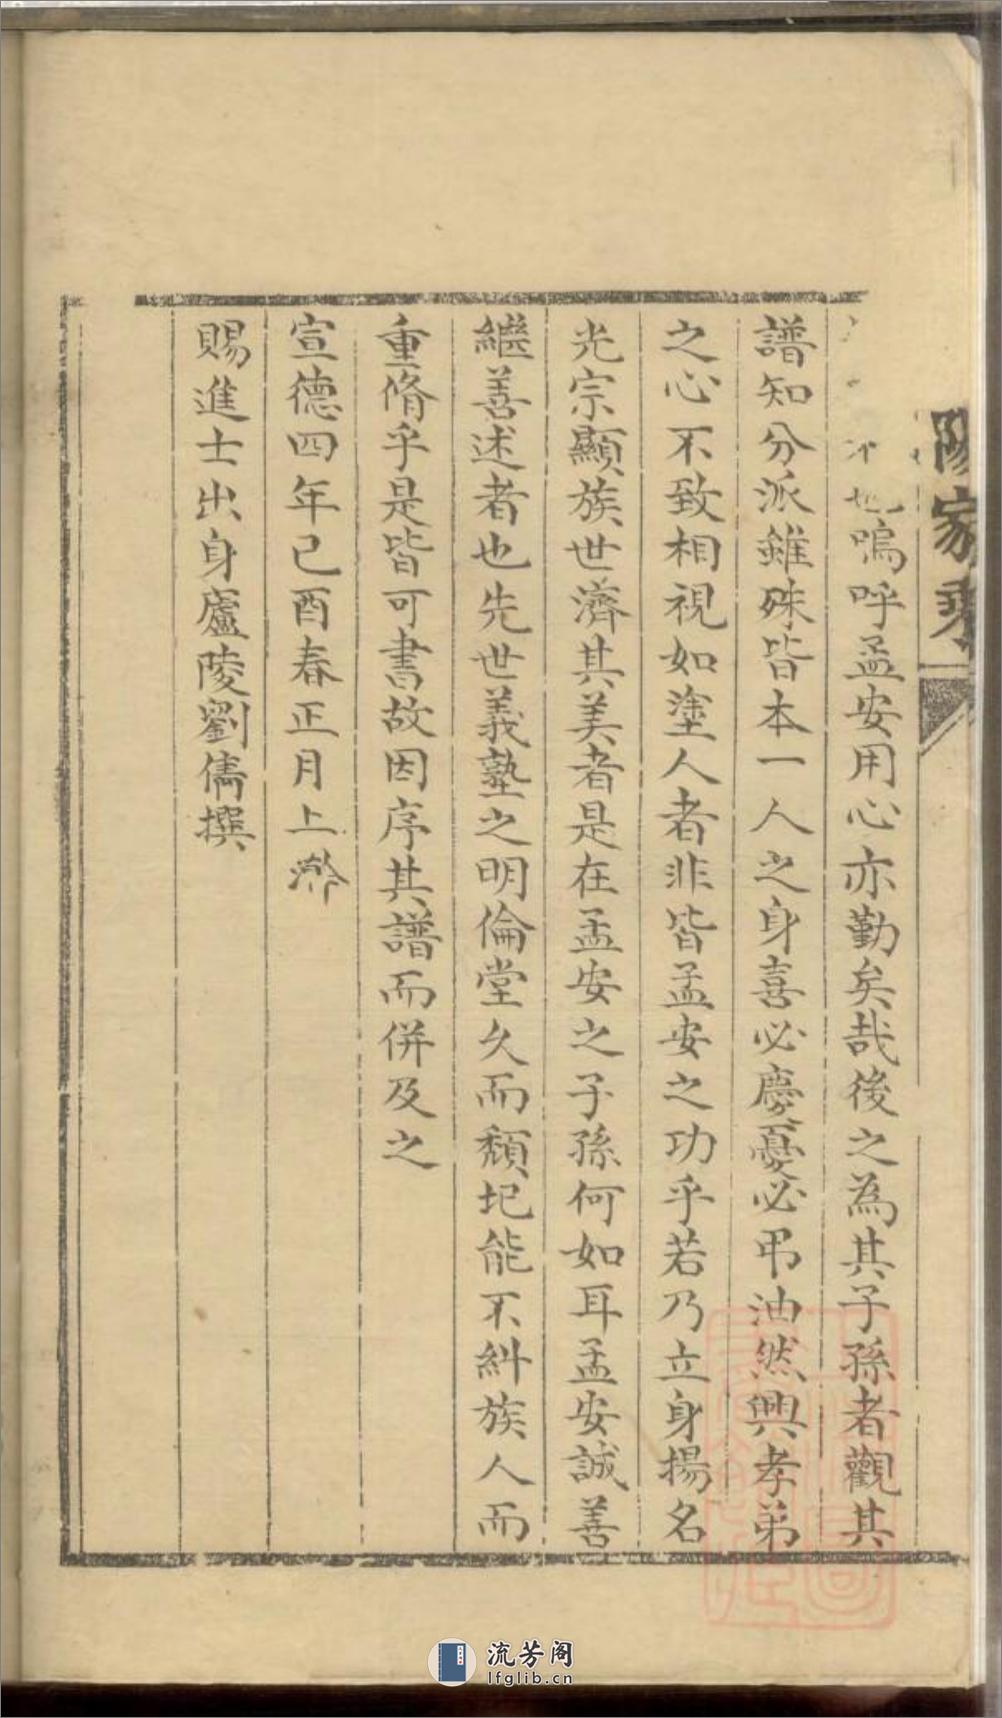 家乘
也嗚呼孟安用心亦勤矣哉後之為其子孫者觀其
譜知分派雖殊皆本一人之身喜必慶憂必弔油然興孝弟
之心不致相視如塗人者非皆孟安之功乎若乃立身揚名
光宗顯族世濟其美者是在孟安之子孫何如耳孟安誠善
繼善述者也先世義塾之明倫堂久而頹圮能不糾族人而
重脩乎是皆可書故因序其譜而併及之
宣德四年己酉春正月上澣
賜進士出身廬陵劉儁撰
流芳阁
lfglib.cn